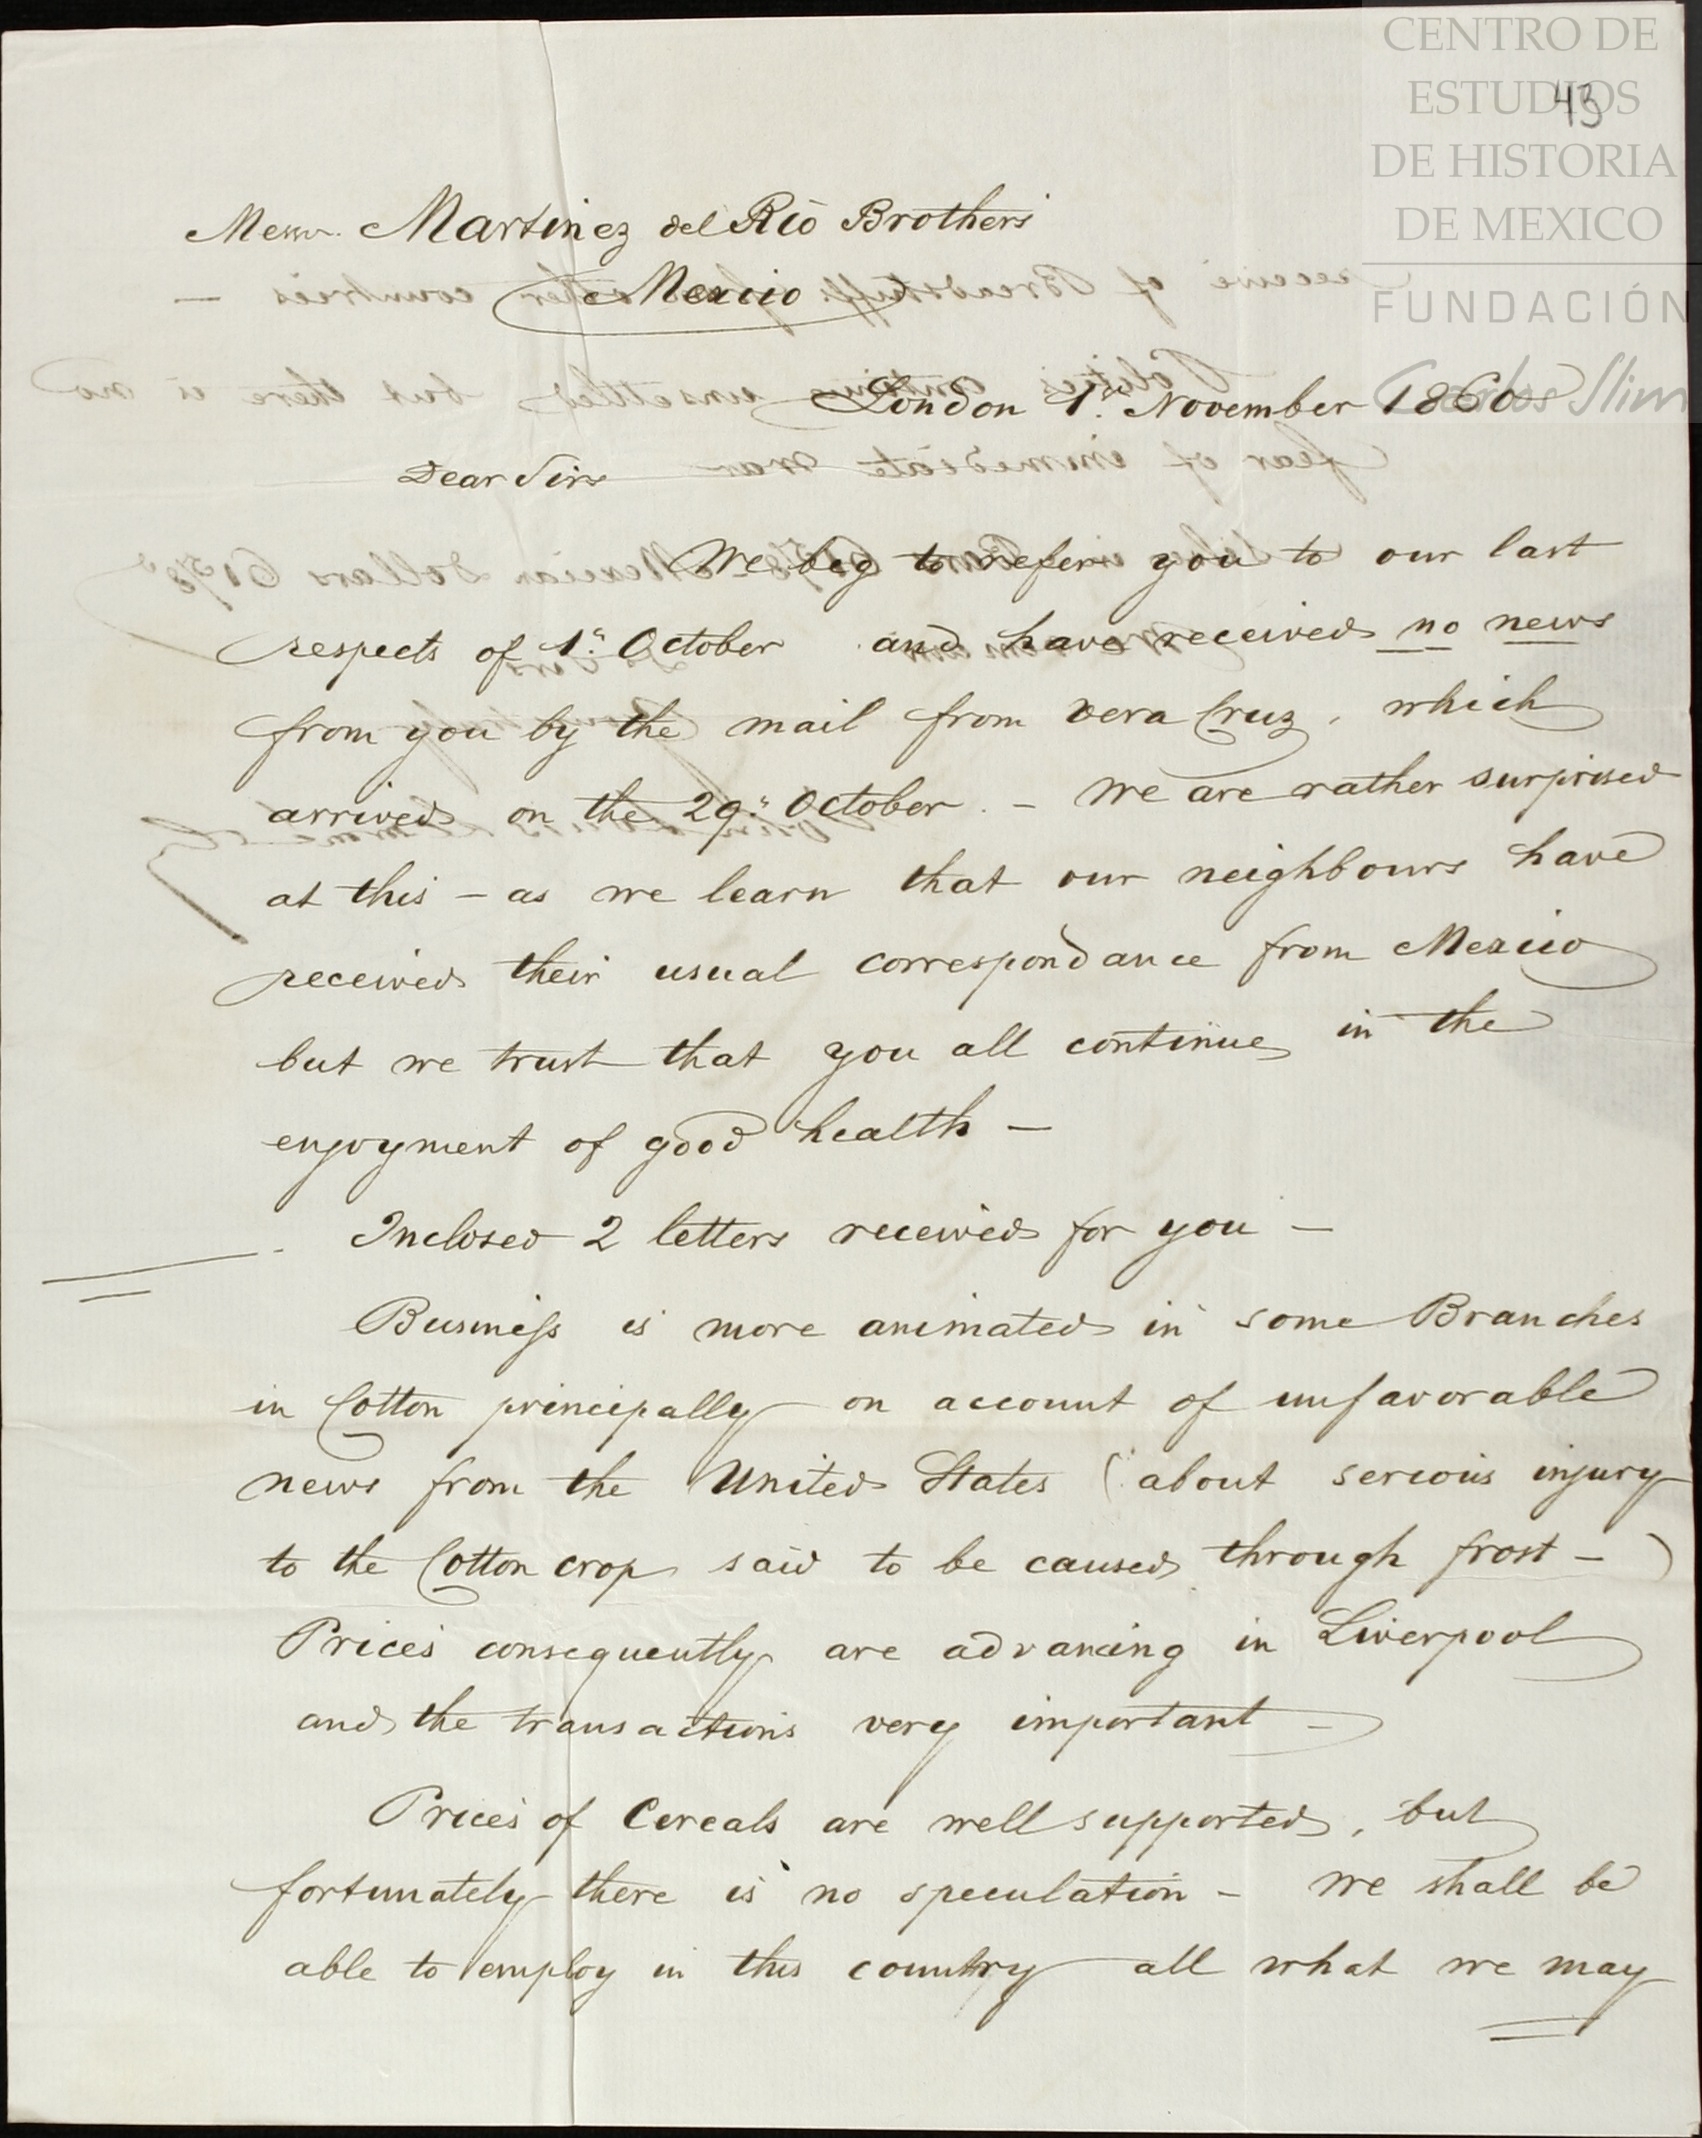 CENTRO DE
ESTUDIOS
DE HISTORIA
DE MEXICO
FUNDACIÓN
Carlos Slim
43
Messrs. Martinez del Rio Brothers
Mexico
London 1st November 1860
Dear Sirs
We beg to refer you to our last
respects of 1st October and have received no news
from you by the mail from Vera Cruz, which
arrived on the 29th October. – We are rather surprised
at this – as we learn that our neighbours have
received their usual correspondance from Mexico
but we trust that you all continue in the
enjoyment of good health –
Inclosed 2 letters received for you –
Business is more animated in some Branches
in Cotton principally on account of unfavorable
news from the United States (about serious injury
to the Cotton crop said to be caused through frost – )
Prices consequently are advancing in Liverpool
and the transactions very important –
Prices of Cereals are well supported, but
fortunately there is no speculation – We shall be
able to employ in this country all what we may